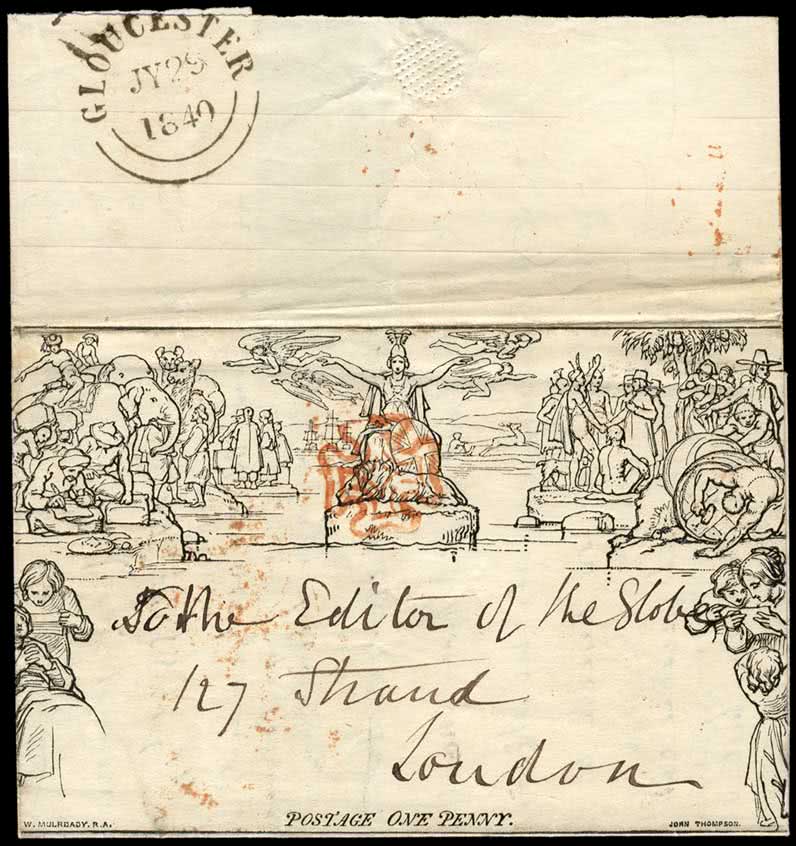 GLOUCESTER
JY 29
1840
To the Editor of the Globe
127 Strand
London
POSTAGE ONE PENNY.
W. MULREADY, R.A.
JOHN THOMPSON.